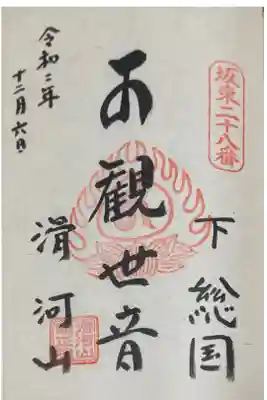 坂東二十八番
下総国
観世音
滑河山
令和二年
十二月六日